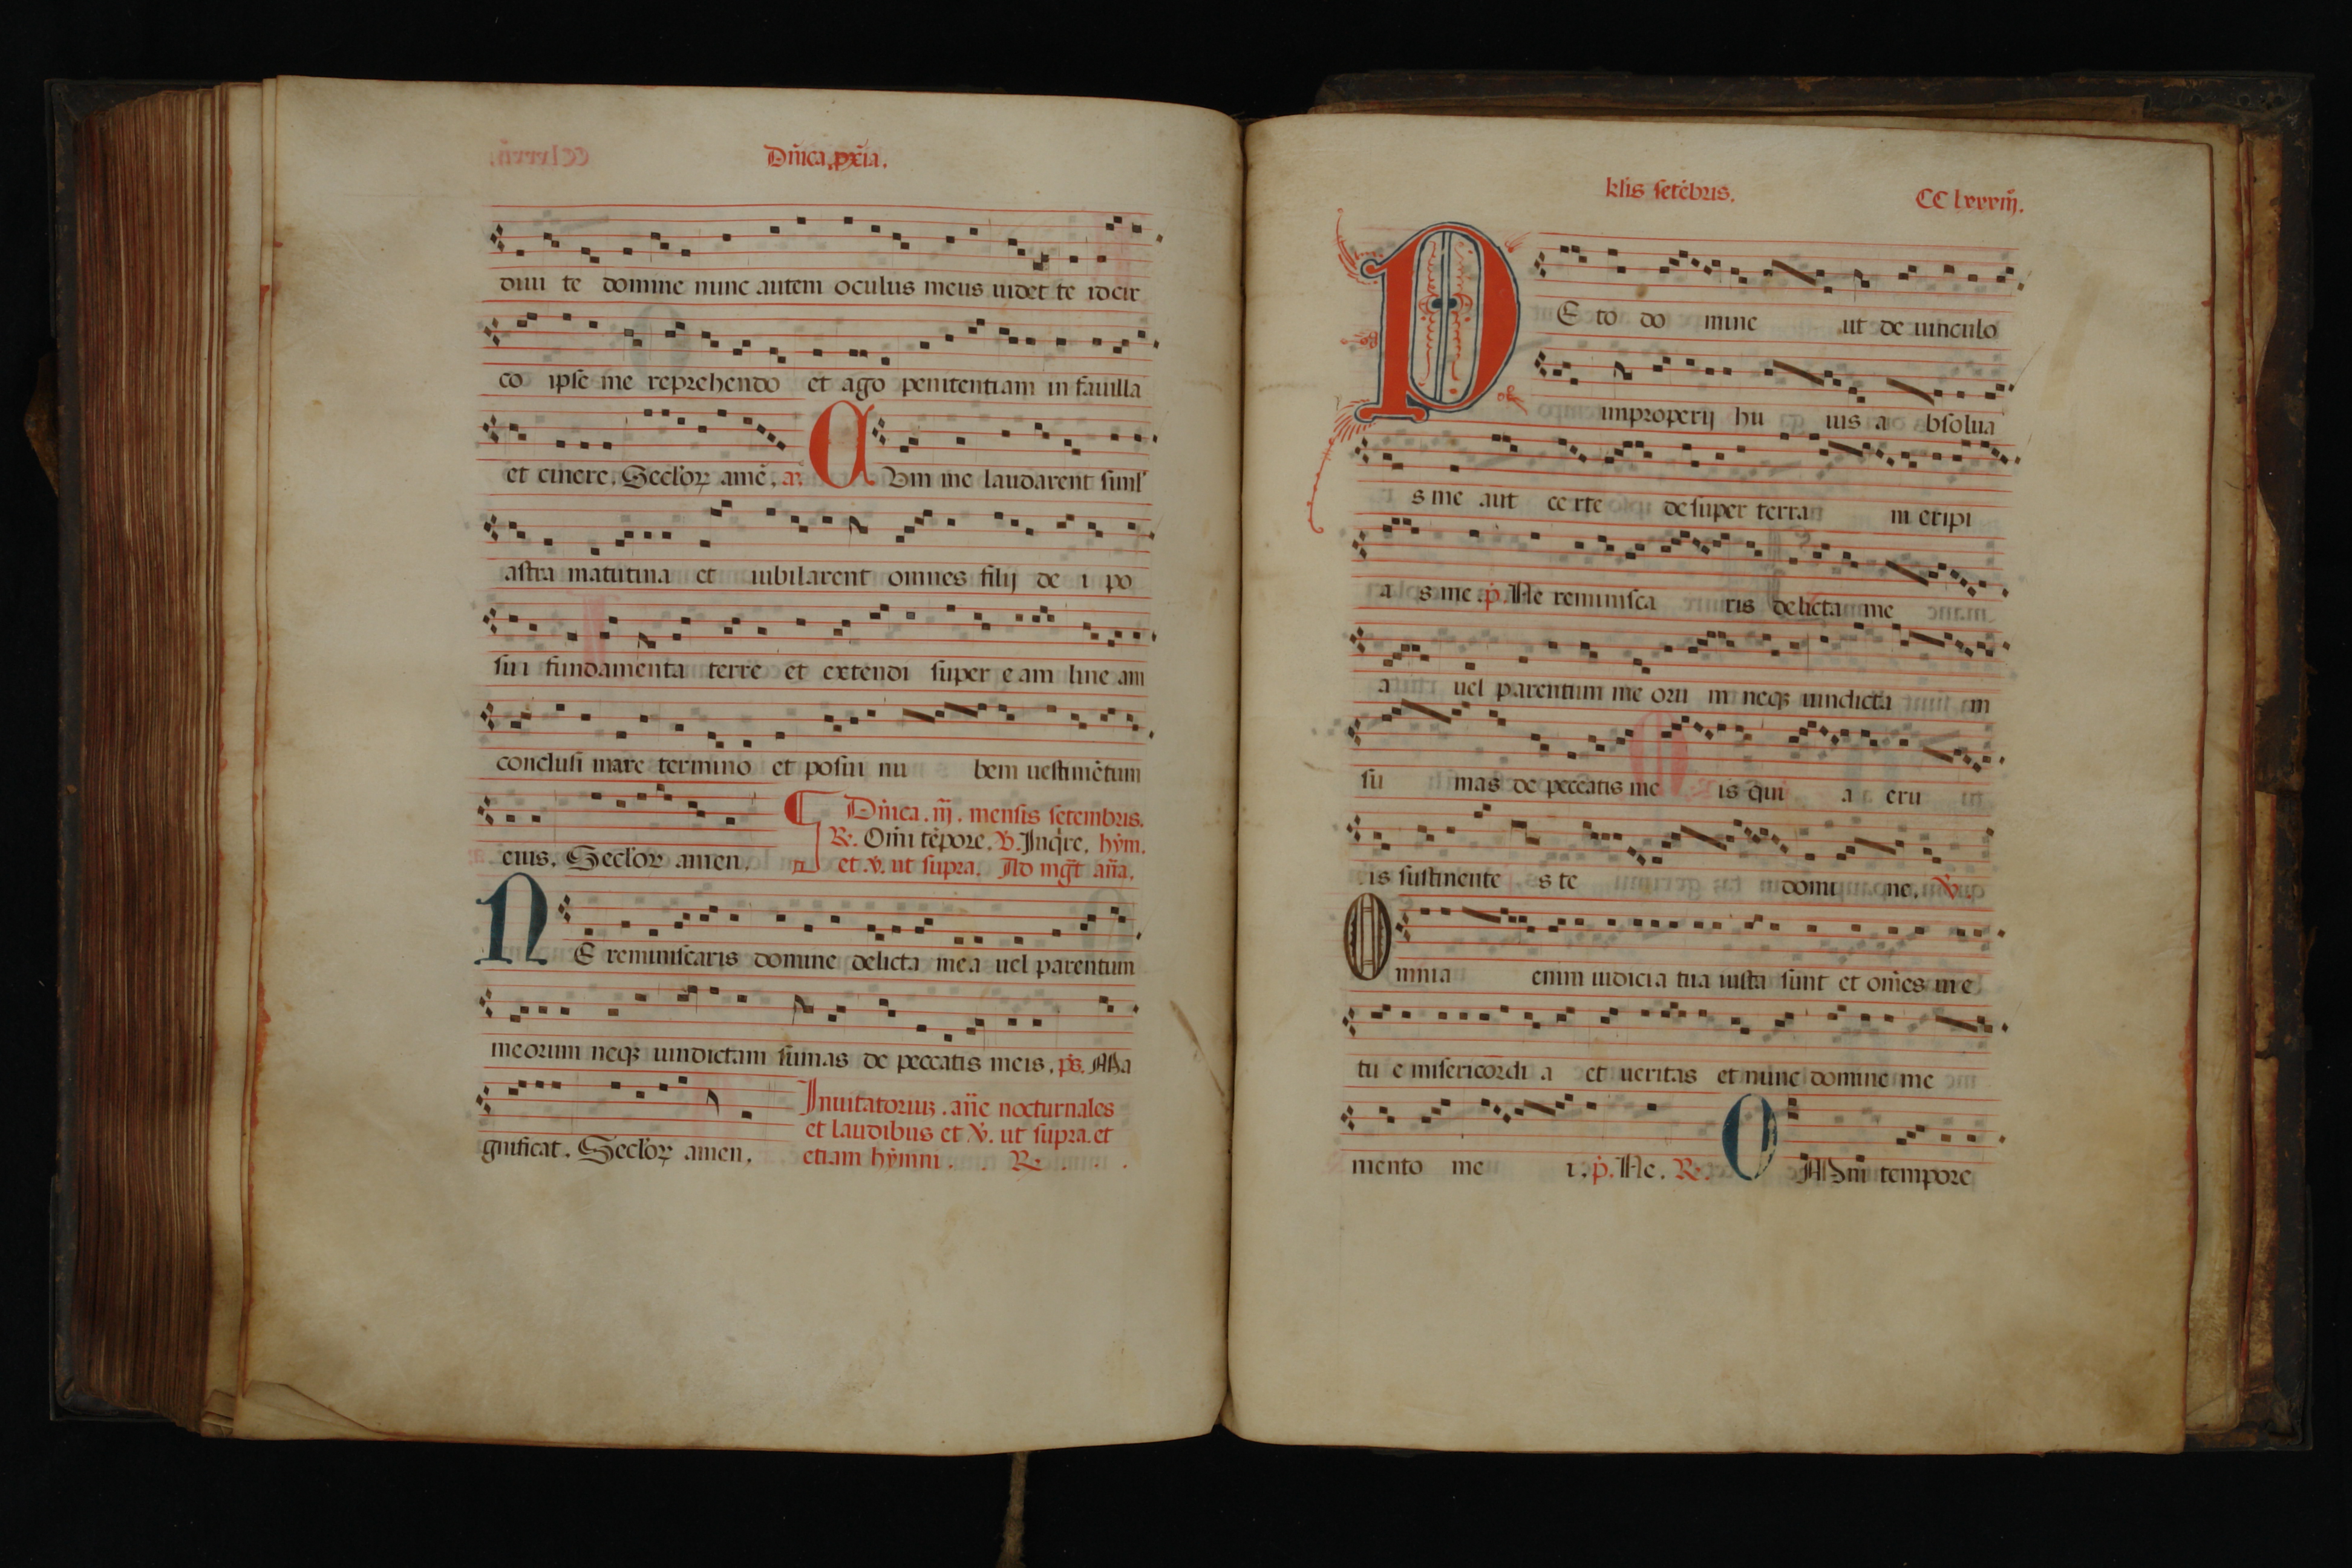 Dñica. pxia.
diui te domine nunc autem oculus meus uidet te idcir
co ipse me reprehendo et ago penitentiam in fauilla
et cinere. Seclor amē. a. Cum me laudarent siml'
astra matutina et iubilarent omnes filij de i po
sui fundamenta terre et extendi super eam line am
conclusi mare termino et posui nu bem uestimētum
eius. Seclor amen.
Dñica. iij. mensis setembris.
R. Om̄i tēpore. V. Inq̄re. hȳm.
et .v. ut supra. Ad mḡt an̄a.
NE reminiscaris domine delicta mea uel parentum
meorum neqꝫ uindictam sumas de peccatis meis. ps. Ma
gnificat. Seclor amen.
Inuitatoriuꝫ. an̄e nocturnales
et laudibus et V. ut supra. et
etiam hȳmni. R.
kl̄is setēbris.
CC lxxxiij.
PEto do mine ut de uinculo
improperij hu ius a bsolua
s me aut ce rte de super terra m eripi
a s me. p. Ne reminisca ris delicta me
a uel parentum me oru m neqꝫ uindicta m
su mas de peccatis me is qui a eru
is sustinente s te domi ne. V.
Omnia enim iudicia tua iusta sunt et om̄es uie
tu e misericordi a et ueritas et nunc domine me
mento me i. p. Ne. R. OMni tempore